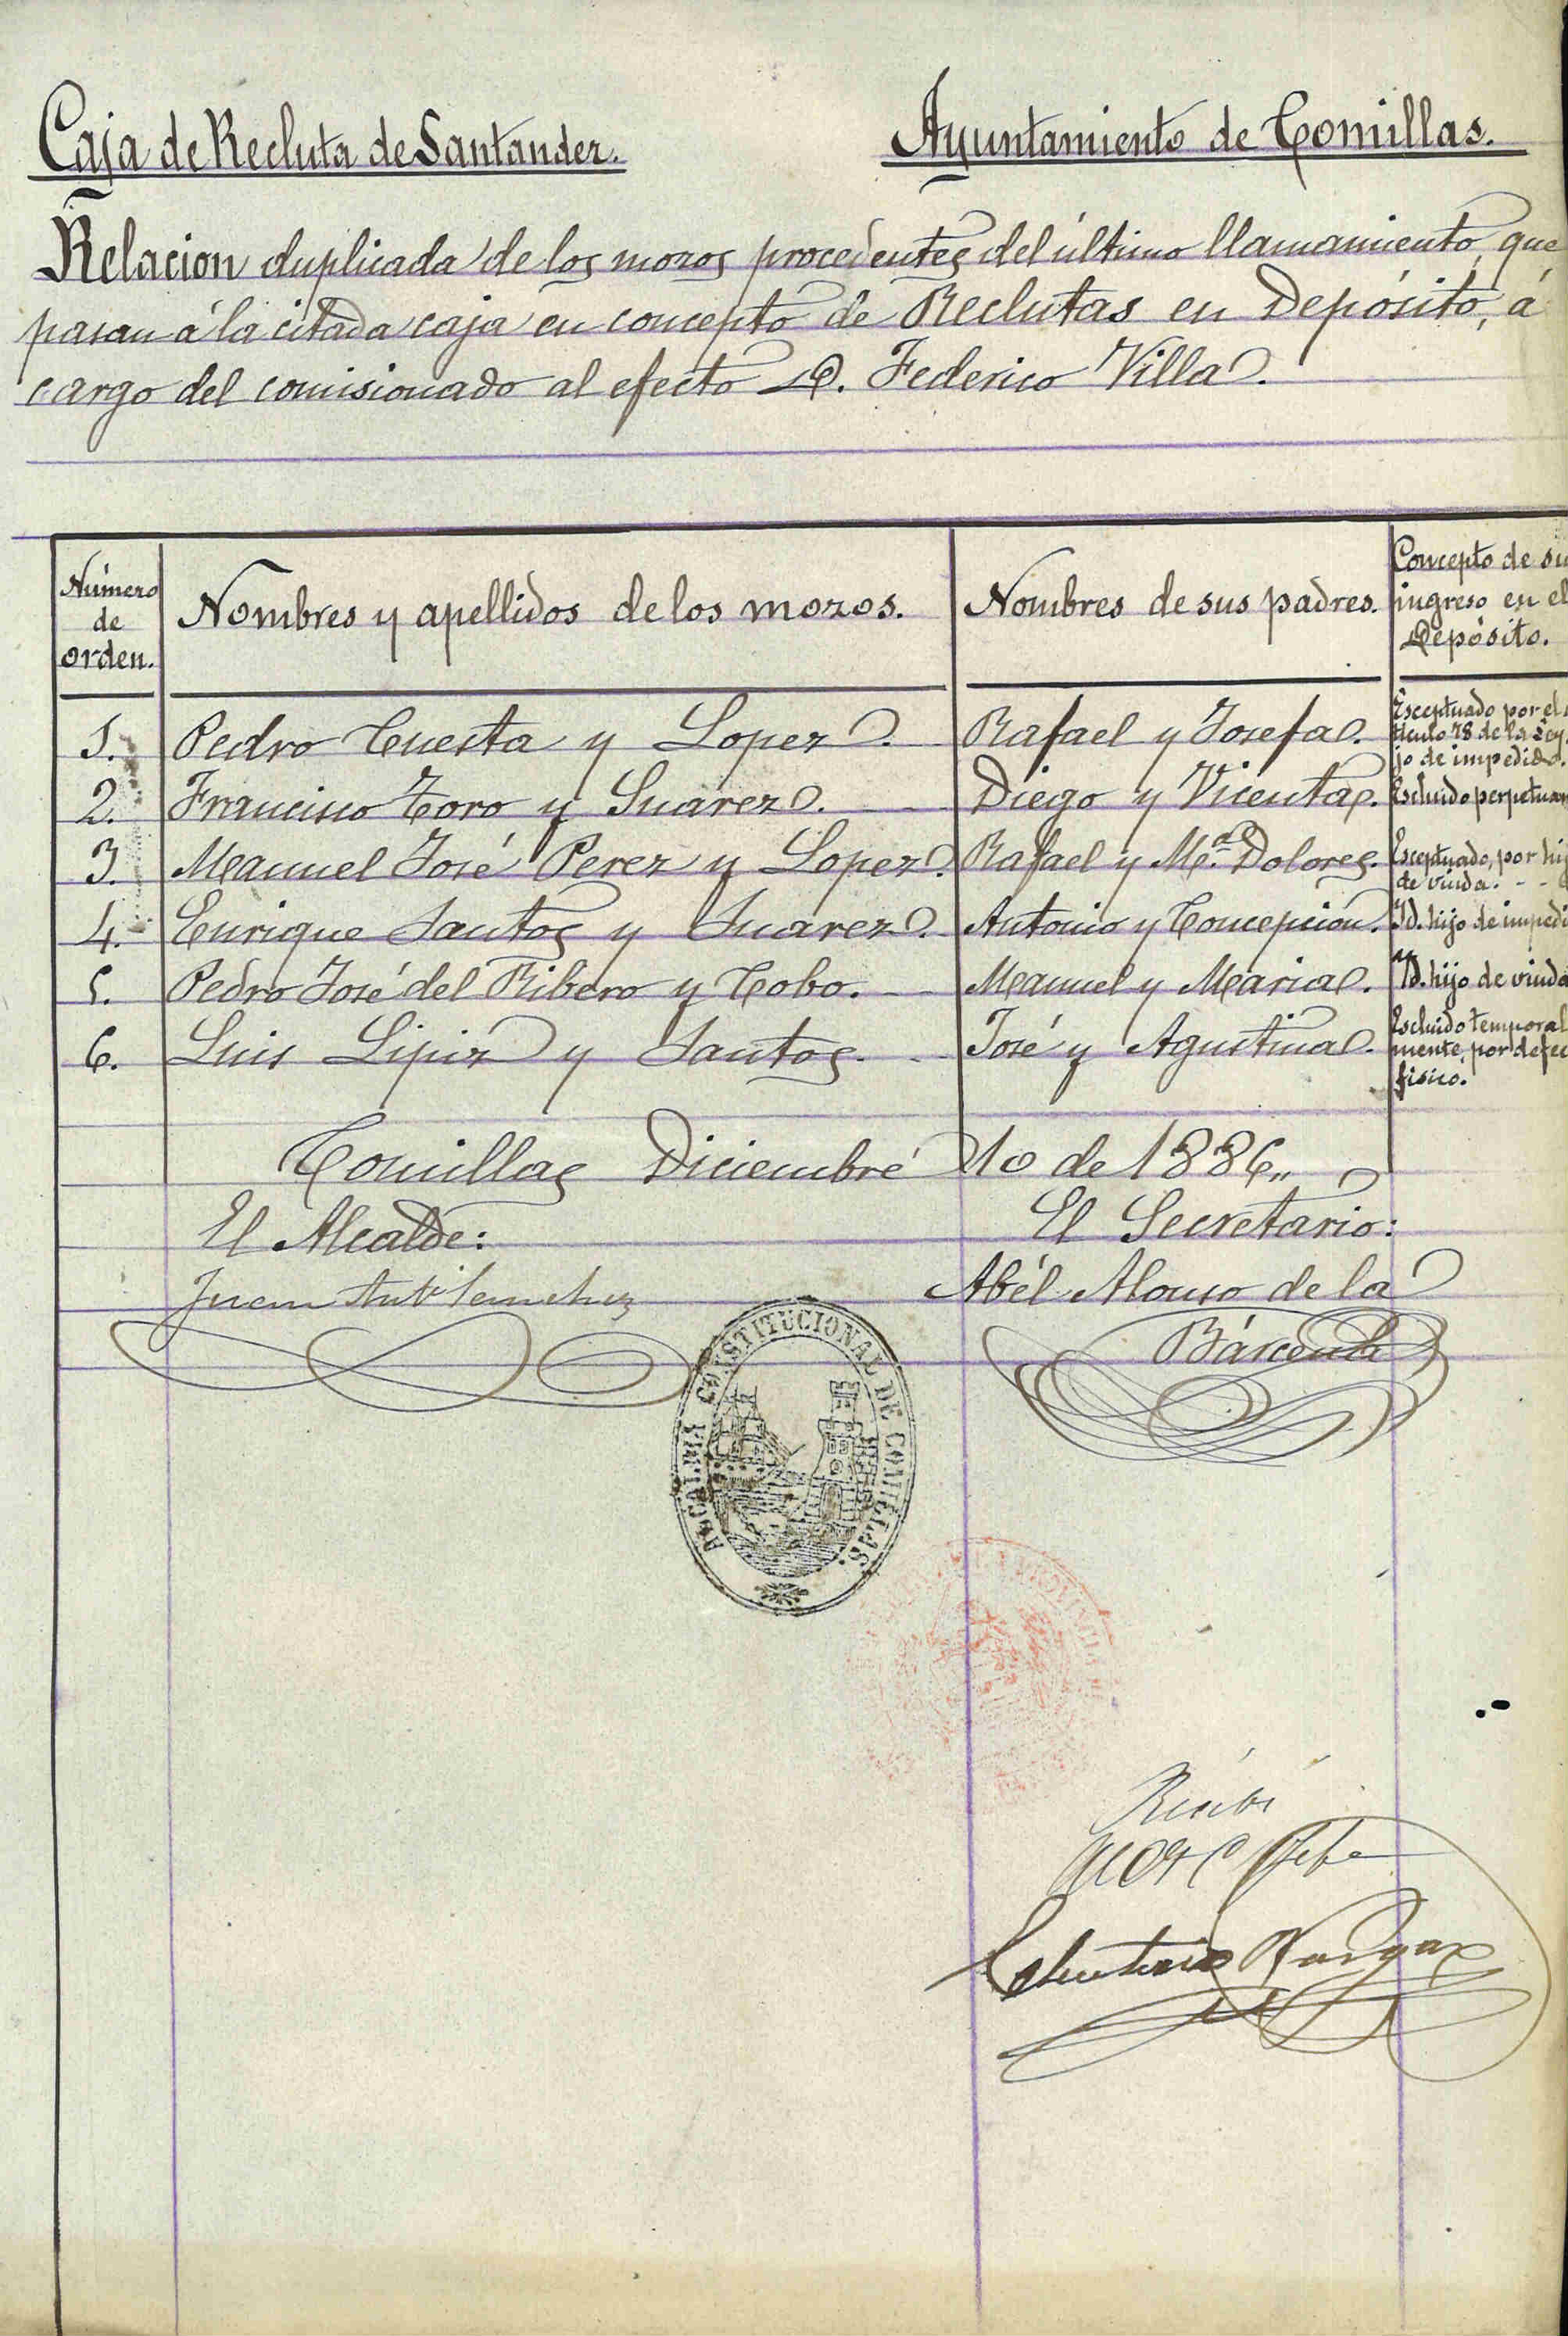 Caja de Recluta de Santander. Ayuntamiento de Comillas.
Relacion duplicada de los mozos procedentes del último llamamiento, que
pasan á la citada caja en concepto de Reclutas en Depósito, á
cargo del comisionado al efecto D. Federico Villa.
Número de orden. Nombres y apellidos de los mozos. Nombres de sus padres. Concepto de su ingreso en el Depósito.
1. Pedro Cuesta y Lopez. Rafael y Josefa. Esceptuado por el
tículo 78 de la Ley
jo de impedido.
2. Francisco Toro y Suarez. Diego y Vicenta. Escluido perpetuam
3. Manuel José Perez y Lopez. Rafael y Mª Dolores. Esceptuado, por hijo
de viuda. - -
4. Enrique Santos y Suarez. Antonio y Concepcion. Id. hijo de impedi
5. Pedro José del Ribero y Cobo. Manuel y Maria. Id. hijo de viuda
6. Luis y Santos. José y Agustina. Escluido temporal
mente, por defec
fisico.
Comillas Diciembre 10 de 1886„
El Alcalde: El Secretario:
Juan Antº Sanchez Abél Alonso de la
Bárcena
ALCALDIA CONSTITUCIONAL DE COMILLAS.
Recibí
Jefe
Vargas